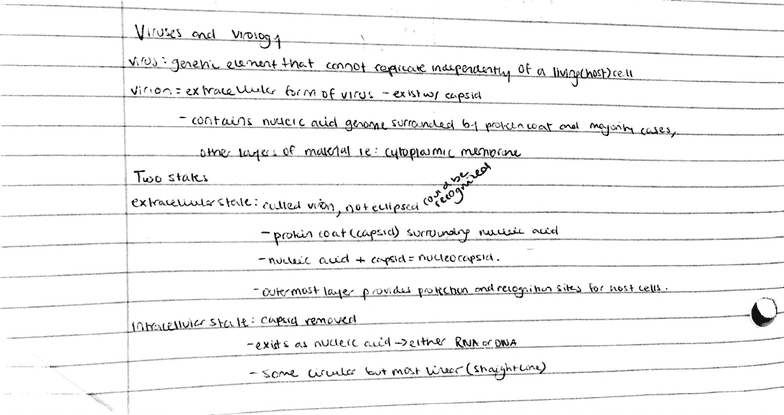 Viruses and virology
virus: genetic element that cannot replicate independently of a living (host) cell
virion = extracellular form of virus - exist w/ capsid
- contains nucleic acid genome surrounded by protein coat and majority cases,
other layers of material ie: cytoplasmic membrane
Two states
extracellular state: called virion, not eclipsed could be recognized
- protein coat (capsid) surrounding nucleic acid
- nucleic acid + capsid = nucleocapsid.
- outermost layer provides protection and recognition sites for host cells.
Intracellular state: capsid removed
- exists as nucleic acid → either RNA or DNA
- some circular but most linear (straight line)